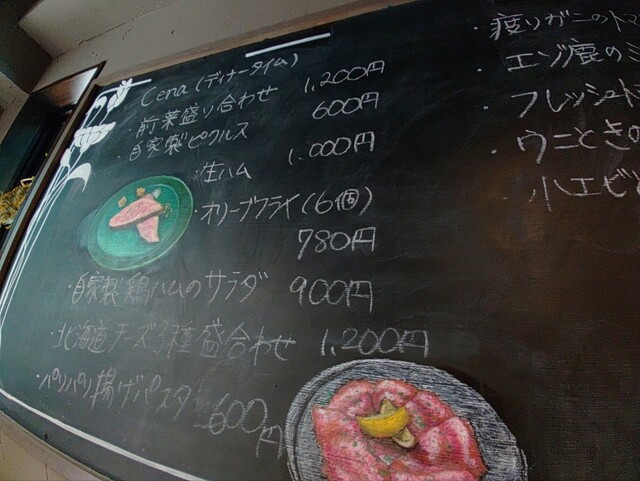 Cena (ディナータイム)
・前菜盛り合わせ 1,200円
・自家製ピクルス 600円
・生ハム 1.000円
・オリーブフライ(6個)
780円
・自家製鶏ハムのサラダ 900円
・北海道チーズ3種盛合わせ 1,200円
・パリパリ揚げパスタ 600円
・エゾ鹿の
・フレッシュト
・ウニとき
小エビ